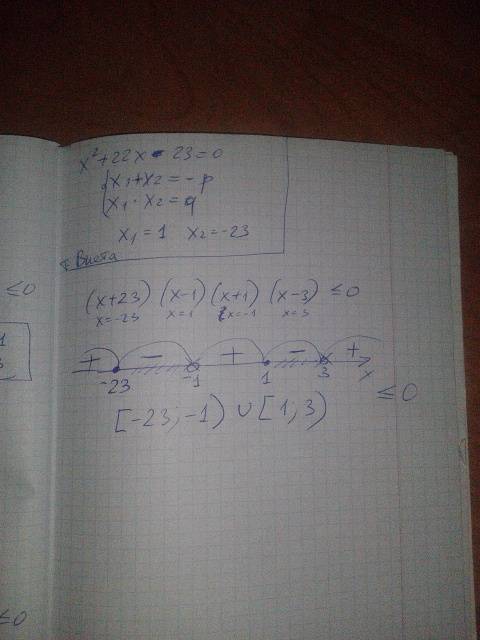 x²+22x-23=0
x₁+x₂=-p
x₁·x₂=q
x₁=1 x₂=-23
т Виета
≤0
(x+23) (x-1) (x+1) (x-3) ≤0
x=-23 x=1 x=-1 x=3
+ - + - +
-23 -1 1 3 x
≤0
[-23;-1) ∪ [1;3)
≤0